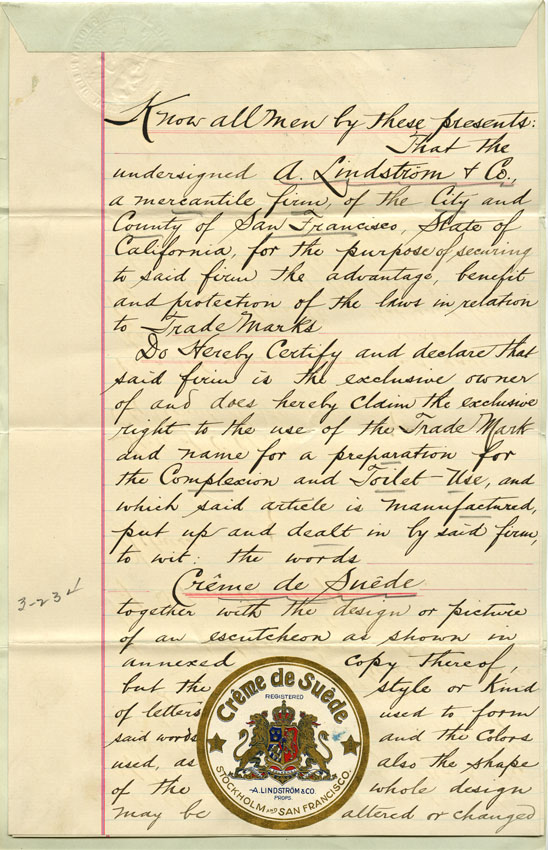 Know all men by these presents:
That the
undersigned A. Lindström & Co.,
a mercantile firm, of the City and
County of San Francisco, State of
California, for the purpose of securing
to said firm the advantage, benefit
and protection of the laws in relation
to Trade Marks
Do Hereby Certify and declare that
said firm is the exclusive owner
of and does hereby Claim the exclusive
right to the use of the Trade Mark
and name for a preparation for
the Complexion and Toilet-Use, and
which said article is manufactured,
put up and dealt in by said firm,
to wit: the words
Crême de Suêde
3-234
together with the design or picture
of an escutcheon as shown in
annexed copy thereof,
but the style or Kind
of letters used to form
said words and the Colors
used, as also the shape
of the whole design
may be altered or changed
Crême de Suêde
REGISTERED
A. LINDSTRÖM & CO.
PROPS.
STOCKHOLM AND SAN FRANCISCO.